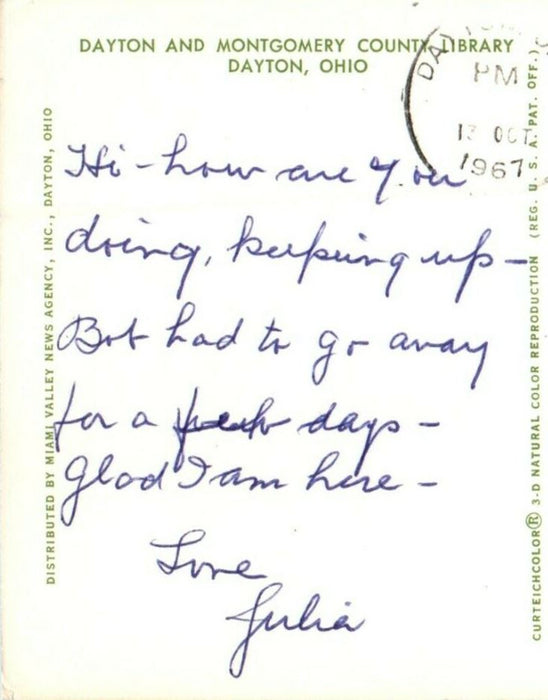 DAYTON AND MONTGOMERY COUNTY LIBRARY
DAYTON, OHIO
PM
13 OCT
1967
Hi - how are you
doing, keeping up -
Bob had to go away
for a days -
Glad I am here -
Love
Julia
DISTRIBUTED BY MIAMI VALLEY NEWS AGENCY, INC., DAYTON, OHIO
CURTEICHCOLOR® 3-D NATURAL COLOR REPRODUCTION (REG. U. S. A. PAT. OFF.)